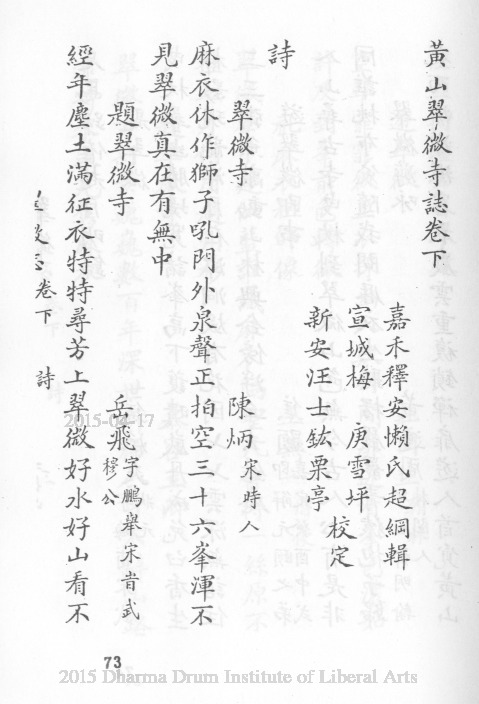 黃山翠微寺誌卷下
嘉禾釋安懶氏超綱輯
宣城梅　庚雪坪
新安汪士鈜栗亭　校定
詩
翠微寺　陳炳宋時人
麻衣休作獅子吼門外泉聲正拍空三十六峯渾不
見翠微真在有無中
題翠微寺　岳飛字鵬舉宋昔武穆公
經年塵土滿征衣特特尋芳上翠微好水好山看不
卷下　詩
73
2015-04-17
2015 Dharma Drum Institute of Liberal Arts